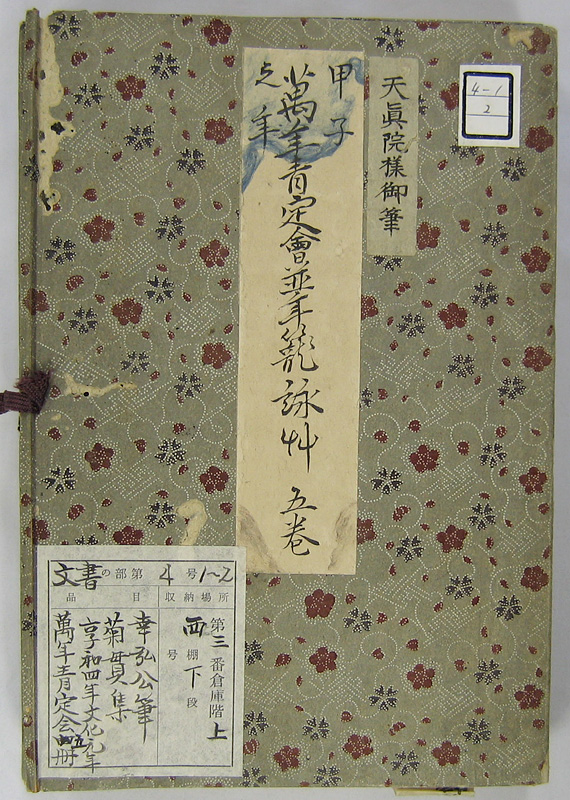 4-1
2
天眞院様御筆
甲子
之年
萬年青定會並年籠詠艸 五巻
文書の部第4号1~2
品目 収納場所
第三番倉庫階上
西棚下段
号
幸弘公筆
菊貫集
享和四年文化元年
萬年青定会 冊